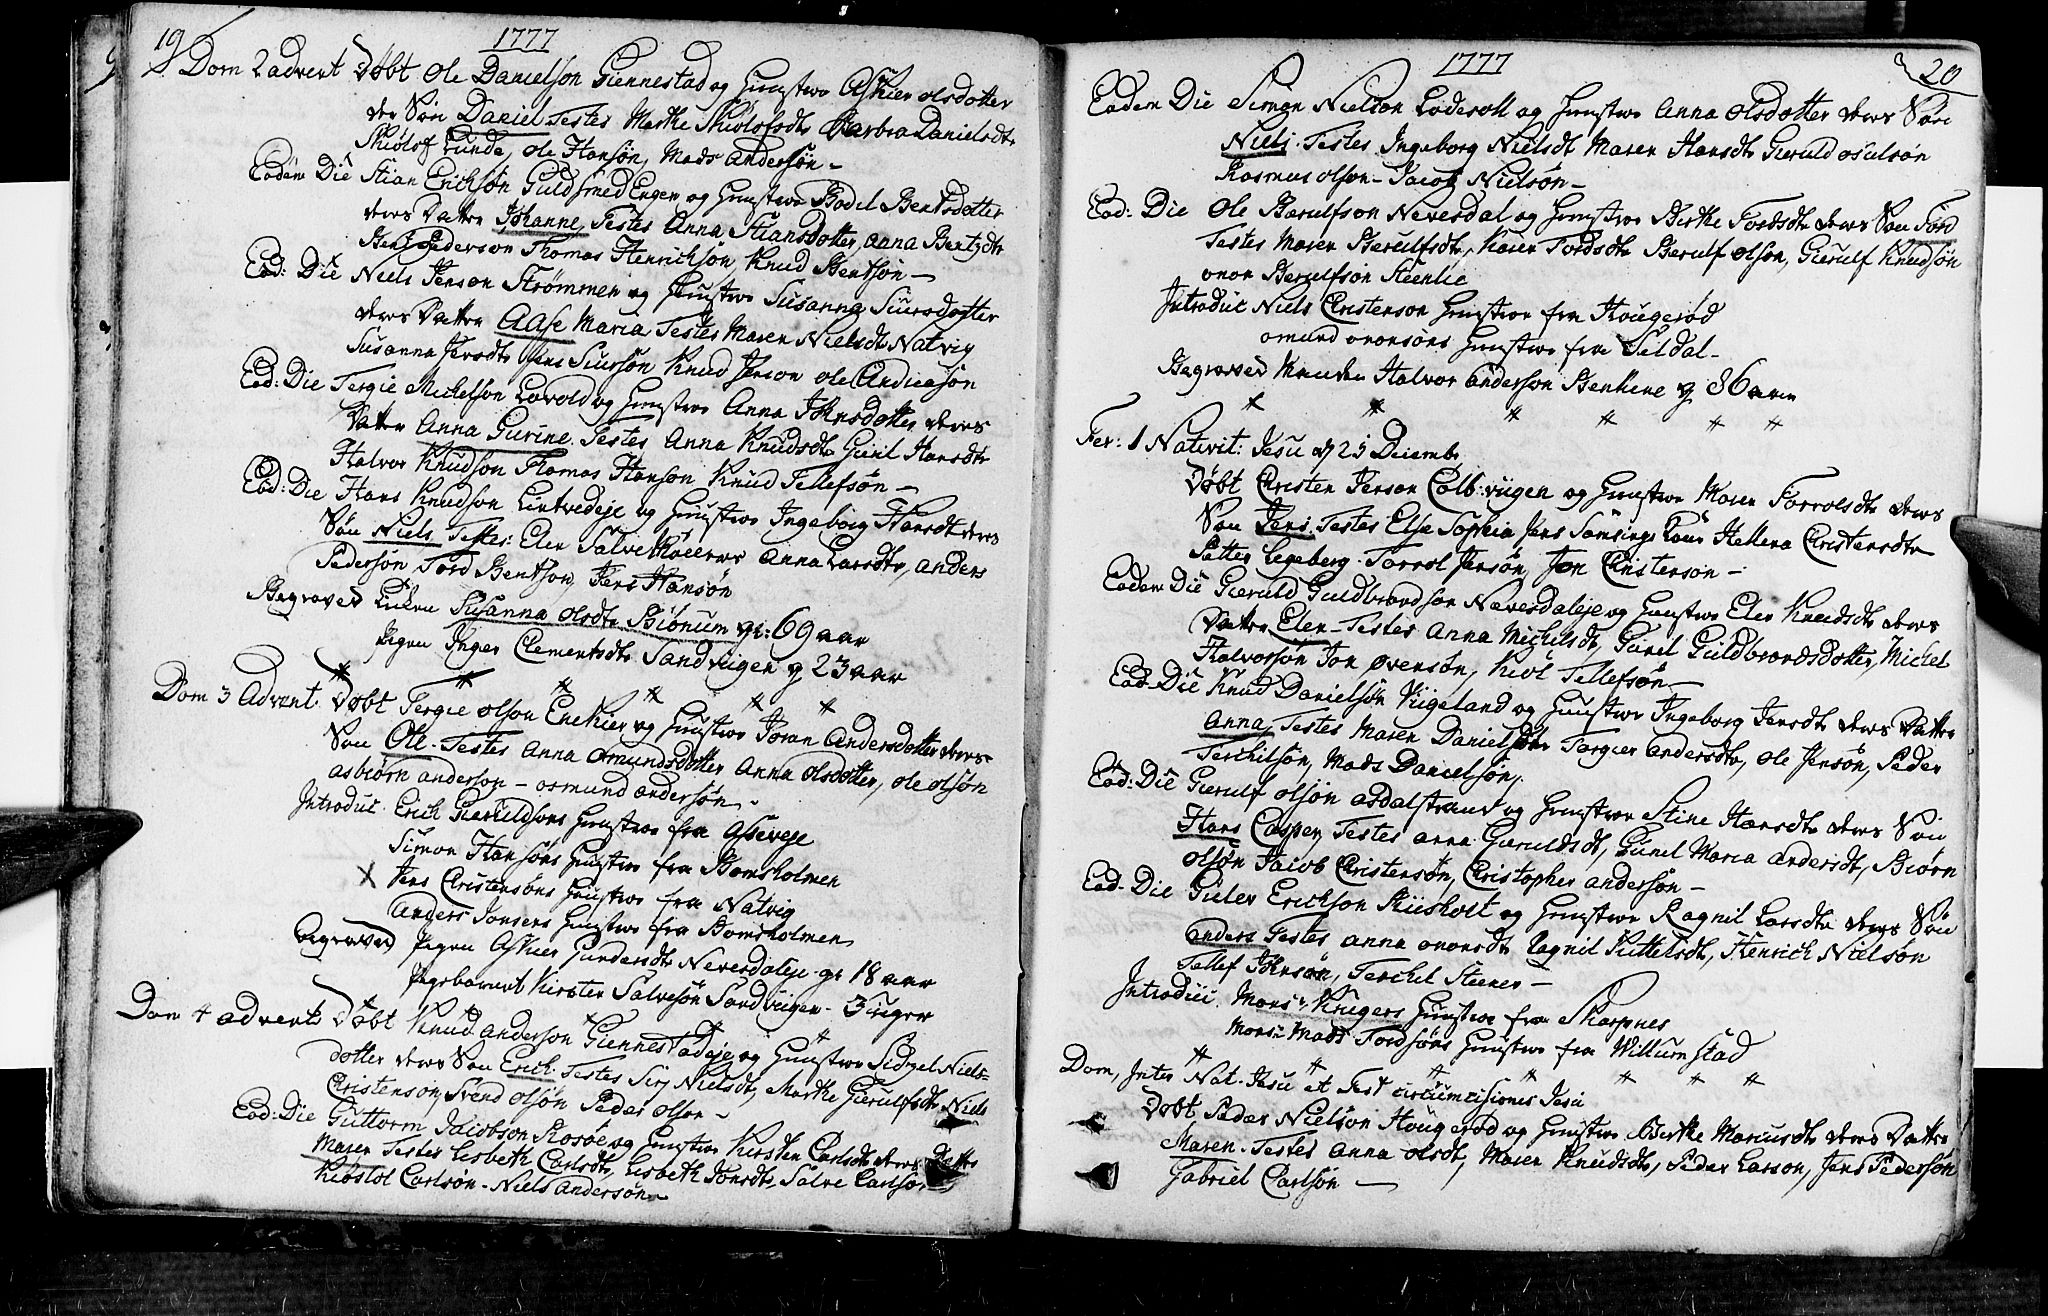 19
1777
Dom 2 advent Døbt Ole Danielson Giennestad og Hustroe Askier olsdotter
der Søn Daniel Testes Marthe Thiolsfsdtr Barbra Danielsdtr
Thiolof Lunde, Ole Hansøn, Mads Andersøn -
Eodem Die Stian Erichsøn Guldsmed Engen og Hustroe Bodil Bentsdotter
deres Datter Johanne Testes Anna Stiansdotter, Anna Bentzdtr
Bent Pederson Thomas Henrichsøn, Knud Bentsøn -
Eod: Die Niels Jenson Strømmen og Hustroe Susanna Siursdotter
deres Datter Aase Maria Testes Maren Nielsdtr Natvig
Susanna Jensdtr Jens Siursøn Knud Jenson Ole Andreasøn
Eod: Die Tergie Michelson Løvold og Hustroe Anna Johnsdotter deres
Datter Anna Gurine. Testes Anna Knudsdtr Gunil Hansdtr
Halvor Knudson Thomas Hanson Knud Tellefsøn -
Eod: Die Hans Knudson Lintvedeje og Hustroe Ingeborg Hansdtr deres
Søn Niels Testes: Elen Salve Møllers Anna Larsdtr, Anders
Pedersøn Tord Bentson, Jens Hansøn
Begraved Enken Susanna Olsdtr Biønum gl: 69 aar
Pigen Inger Clementsdtr Sandviigen g 23 aar
Dom 3 Advent. Døbt Tergie Olson Enekier og Hustroe Joran Andersdotter deres
Søn Ole. Testes Anna Omundsdotter Anna Olsdotter, Ole Olsøn
Asbiørn Anderson - Osmund Andersøn -
Introduc. Erich Gieruldsons Hustroe fra Asseveje
Simon Hansøns Hustroe fra Bomsholmen
x Jens Christensøns Hustroe fra Natvig
Anders Jonsens Hustroe fra Bomsholmen
Begraved Pigen Askier Gundersdtr Neversdaleje gl 18 aar
Pigebarnet Kirsten Salvesøn Sandviigen - 3 uger
Dom 4 advents Døbt Knud Anderson Giennestadeje og Hustroe Sidzel Niels-
dotter deres Søn Erich. Testes Siri Nielsdtr, Marthe Gierulfsdtr Niels
Christenson, Svend Olsøn Peder Olson -
Eod: Die Guttorm Jacobson Rosøe og Hustroe Kirsten Carlsdtr deres Datter
Maren Testes Lisbeth Carlsdtr, Lisbeth Jonsdtr, Salve Carlsøn
Kiøstol Carlsøn - Niels Andersøn -
20
1777
Eodem Die Simon Nielson Lodesoll og Hustroe Anna Olsdotter deres Søn
Niels. Testes Ingeborg Nielsdtr Maren Hansdtr Gieruld Osulsøn
Rasmus Olson - Jacob Nielsøn -
Eod: Die Ole Berulfson Neversdal og Hustroe Berthe Tordsdtr deres Søn Tord
Testes Maren Berulfsdtr, Karen Tordsdtr Berulf Olson, Gierulf Knudsøn
Onon Berulfsøn Steenlie
Introduc Niels Christenson Hustroe fra Hougerød
Omund Ononsøns Hustroe fra Seldal -
Begraved Manden Halvor Anderson Benkene g 86 aar
Fer: 1 Nativit: Jesu d 25 Decembr
Døbt Christen Jenson Colb:viigen og Hustroe Maren Torrolsdtr deres
Søn Jens. Testes Else Sophia Jens Samsings Kone Hellena Christensdtr
Petter Legeberg - Torrol Jensøn, Jon Christenson -
Eodem Die Gieruld Guldbrandson Neversdaleje og Hustroe Elen Knudsdtr deres
Datter Elen - Testes Anna Michelsdtr, Gunel Guldbrandsdotter, Michel
Halvorsøn Jon Ovensøn, Kiol Tellefsøn -
Eod: Die Knud Danielsøn Viigeland og Hustroe Ingeborg Jensdtr deres Datter
Anna, Testes Maren Danielsdtr Torgier Andersdtr, Ole Jensøn, Peder
Terchilson, Mads Danielsøn.
Eod: Die Gierulf Olsøn Asdalstrand og Hustroe Stine Hansdtr deres Søn
Hans Casper, Testes Anna Gieruldsdtr, Gunel Maria Andersdtr, Biørn
Olsøn Jacob Christensøn, Christopher Andersøn -
Eod- Die Gulev Erichson Riisholt og Hustroe Ragnil Larsdtr deres Søn
Anders Testes Anna Ononsdtr Ragnil Kittelsdtr, Henrich Nielsøn
Tellef Johnsøn, Terchel Steener -
Introduc. Mons: Krugers Hustroe fra Skarpnes
Mons: Mads Tordsøns Hustroe fra Willumstad
Dom, Inter Nat. Jesu et Fest circumcisiones Jesu
Døbt Peder Nielson Hougerød og Hustroe Berthe Marcusdtr deres Datter
Maren. Testes Anna Olsdtr, Maren Knudsdtr, Peder Larson, Jens Pedersøn
Gabriel Carlsøn -